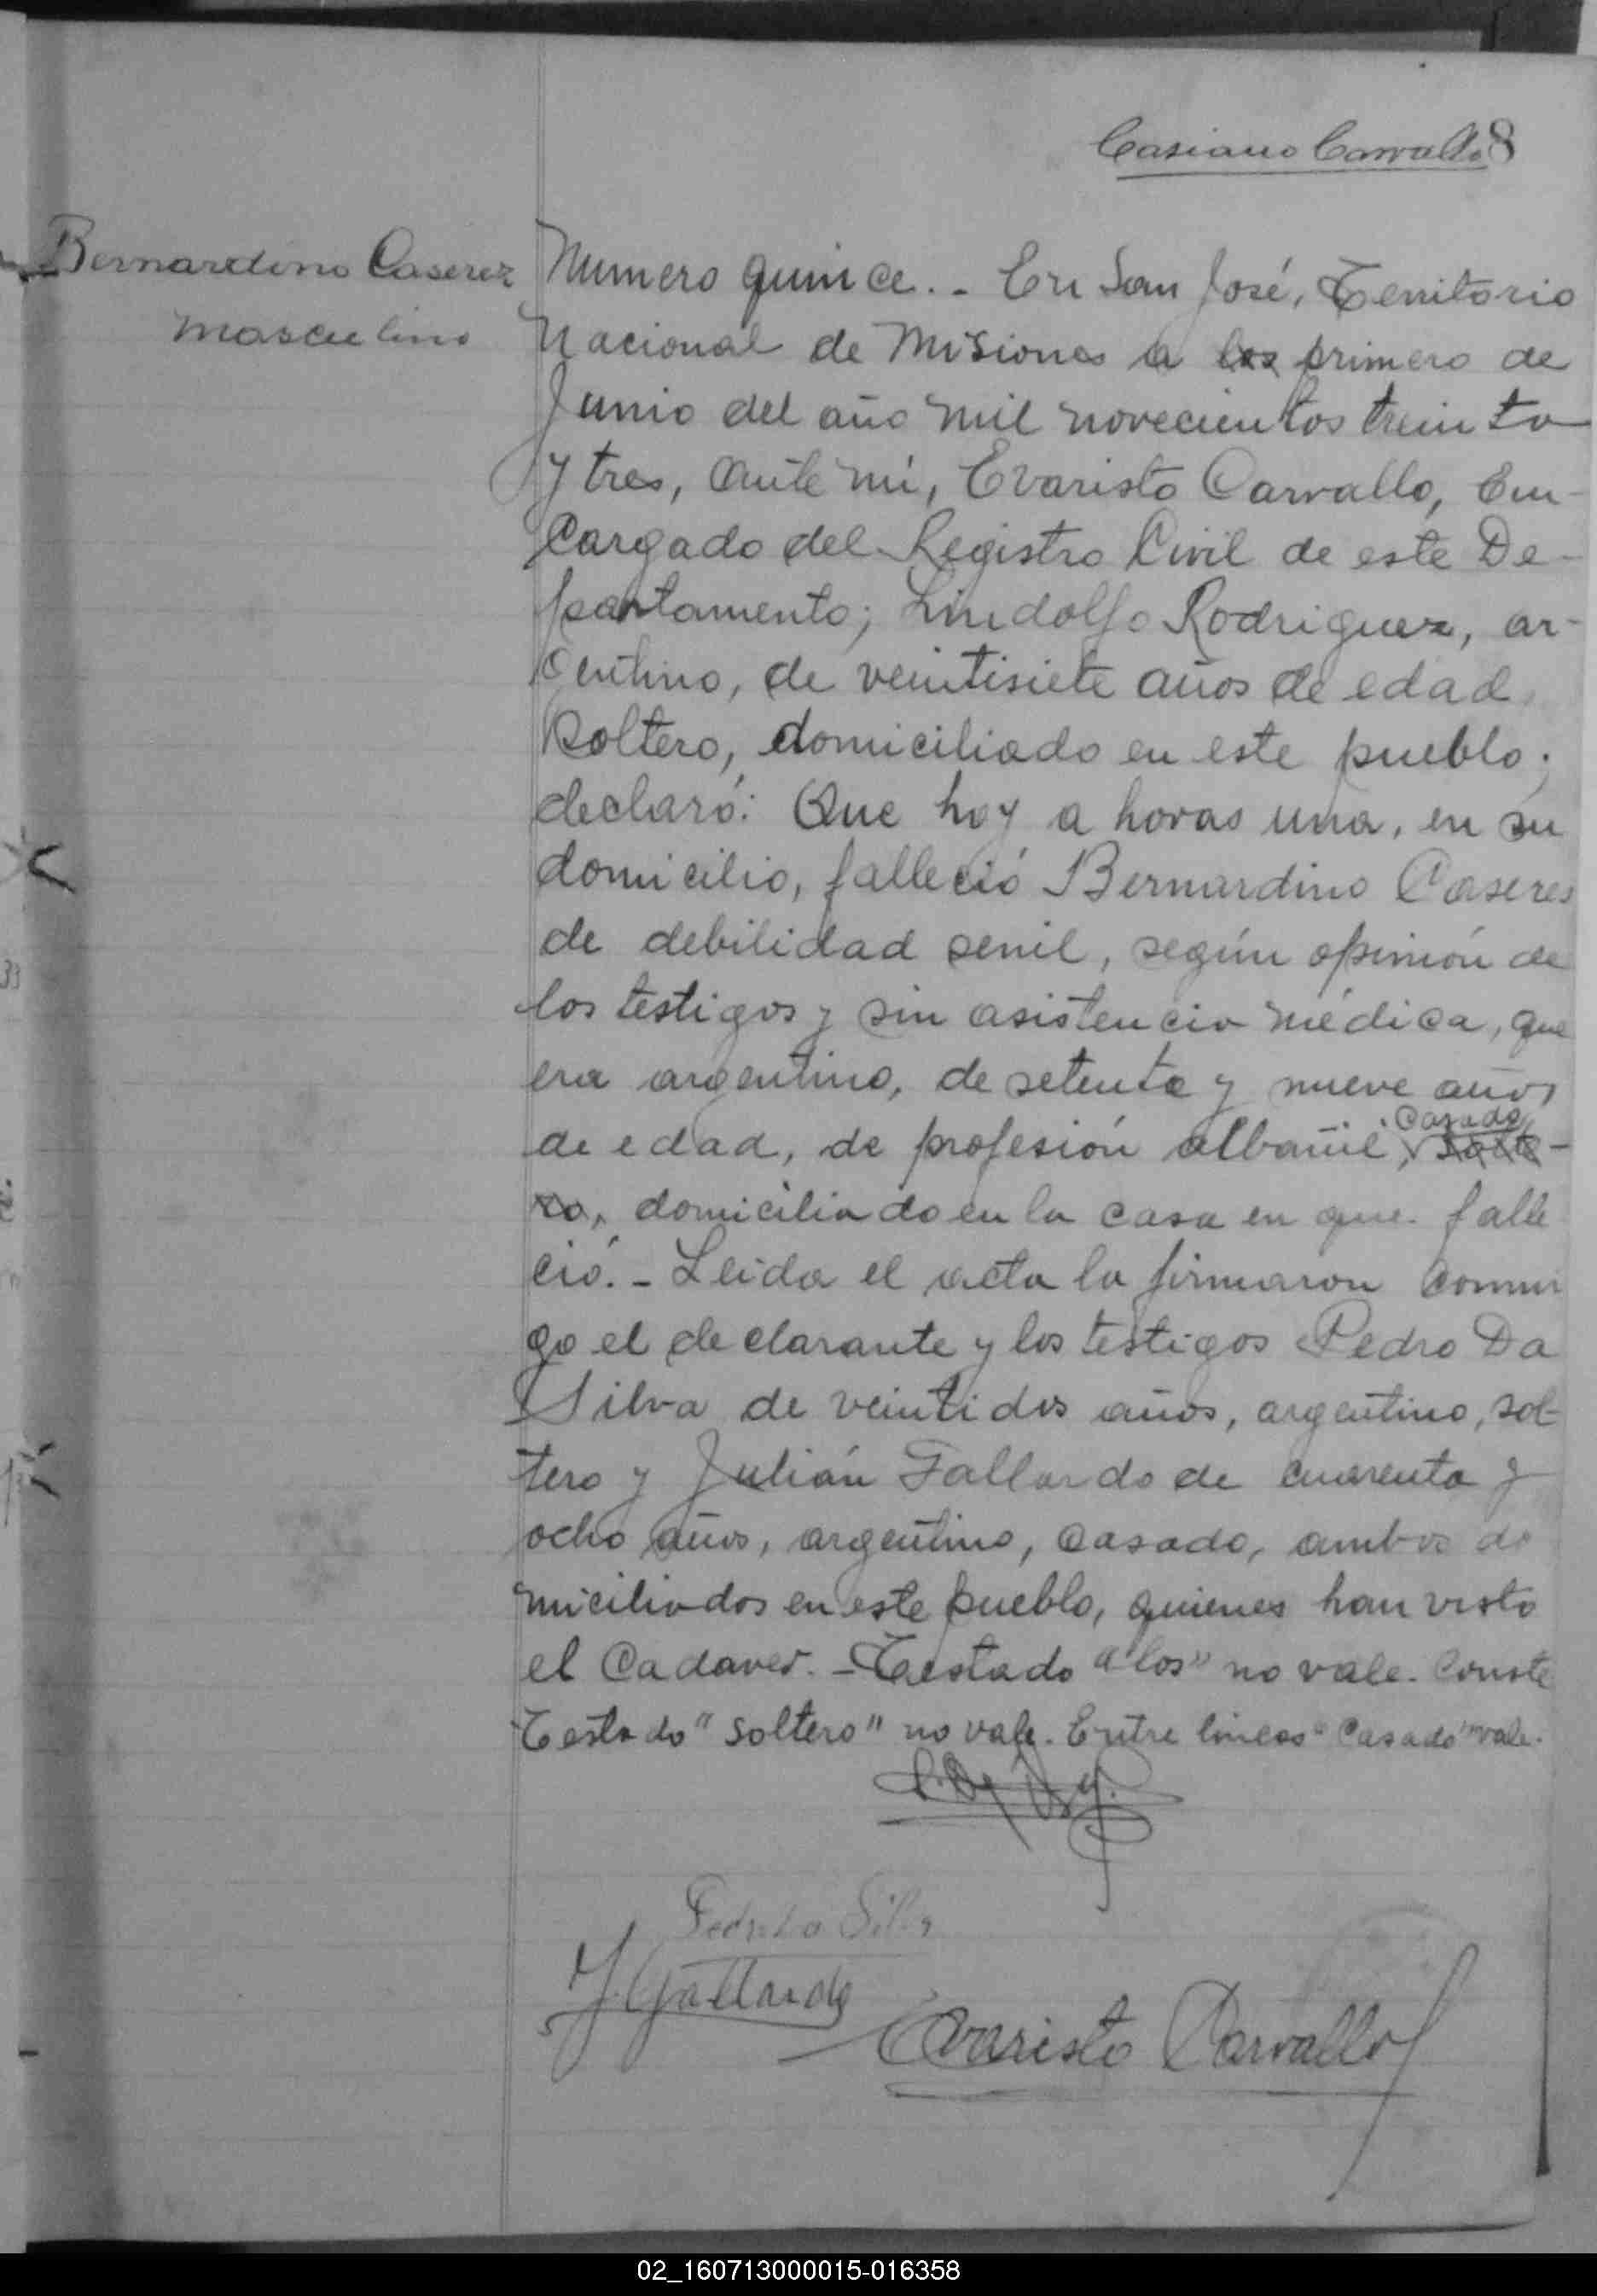 Casiano Carvallo 8
Bernardino Caserez
masculino
Numero quince. - En San José, Territorio
Nacional de Misiones a los primero de
Junio del año mil novecientos treinta
y tres, ante mí, Evaristo Carvallo, En-
cargado del Registro Civil de este De-
partamento; Lindolfo Rodriguez, ar-
gentino, de veintisiete años de edad,
soltero, domiciliado en este pueblo;
declaró: Que hoy a horas una, en su
domicilio, falleció Bernardino Caseres
de debilidad senil, según opinión de
los testigos y sin asistencia médica, que
era argentino, de setenta y nueve años
de edad, de profesión albañil, casado, solte-
ro, domiciliado en la casa en que falle
ció. - Leida el acta la firmaron conmi
go el declarante y los testigos Pedro Da
Silva de veintidos años, argentino, sol-
tero y Julián Fallardo de cuarenta y
ocho años, argentino, casado, ambos do
miciliados en este pueblo, quienes han visto
el cadaver. - Testado "los" no vale. Conste
Testado "soltero" no vale. Entre lineas "casado" vale.
Pedro Da Silva
J. Gallardo
Evaristo Carvallo
02_160713000015-016358